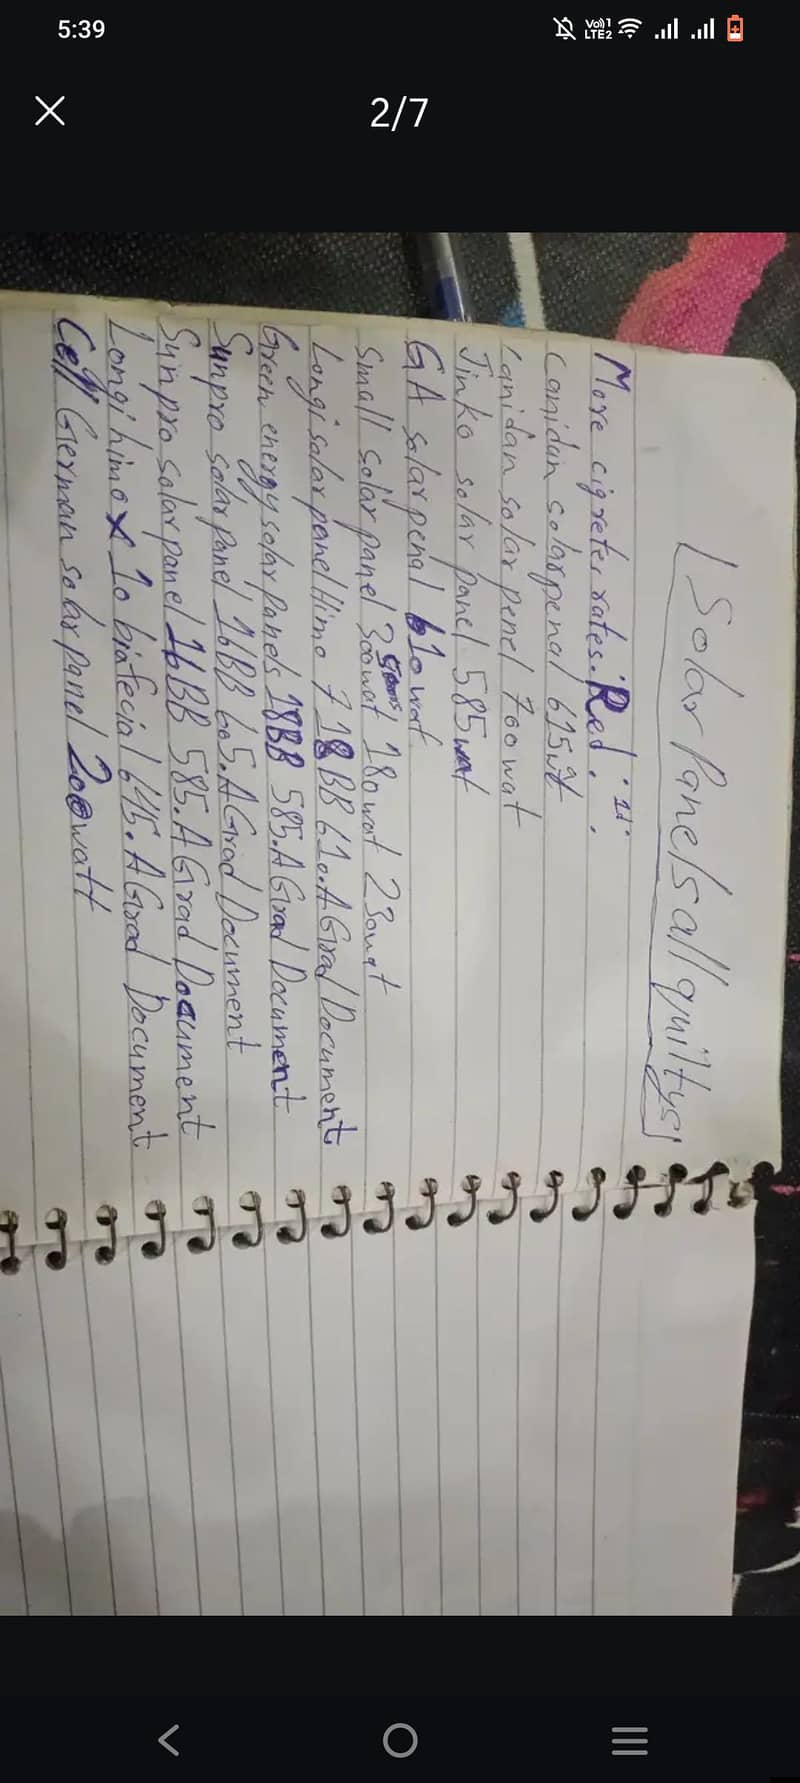 5:39
Vo)) 1
LTE2
2/7
Solar Panels all quiltys
More cigreter rates: Red. "11".
Canidan solar penal 615wt
Canidan solar penel 700wat
Jinko solar panel 585wat
GA solar penal 610wat
Small solar panel 300wat 180wat 230wat
Longi solar panel Himo 7 18BB 610.A Grad Document
Green energy solar Panels 18BB 585.A Grad Document
Sunpro solar panel 16BB 605.A Grad Document
Sunpro solar panel 16BB 585.A Grad Document
Longi himo x 10 biafecial 645.A Grad Document
Cell German solar panel 200watt